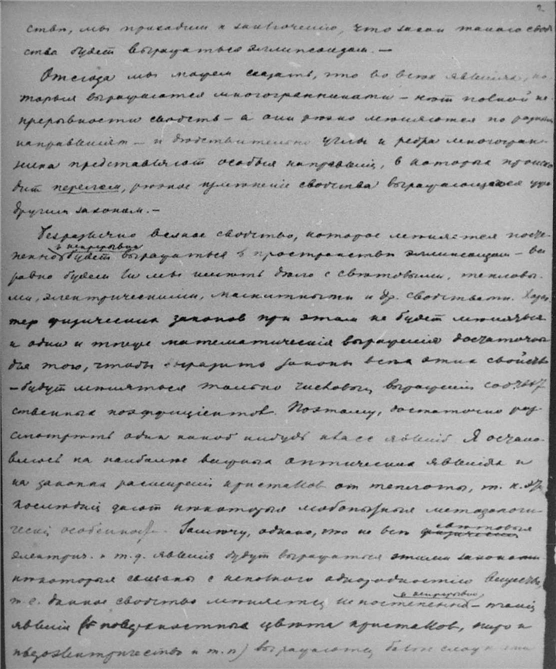 2
ства, мы приходим к заключению, что закон такого свой
ства будет выражаться эллипсоидом. —
Отсюда мы можем сказать, что во всех явлениях, ко
торыя выражаются многогранниками – нет полной не
прерывности свойств – а они резко меняются по разным
направлениям – и действительно углы и ребра многогран
ника представляют особыя направления, в которых происхо
дит перелом, резкое изменение свойства выражающееся уже
другим законом. —
Безразлично всякое свойство, которое меняется посте
и непрерывно
пенно будет выражаться в пространстве эллипсоидом – все
равно будем ли мы иметь дело с световыми, тепловы
ми, электрическими, магнитными и др. свойствами. Харак
тер физических законов при этом не будет меняться
и одни и те же математическия выражения достаточны
для того, чтобы выразить законы всех этих свойств
– будут меняться только числовыя выражения соответ
ственных коэффициентов. Поэтому, достаточно рас
смотреть один какой нибудь класс явлений. Я остано
влюсь на наиболее важных оптических явлениях и
на законах расширения кристаллов от теплоты, т. к. эти
последния дают некоторыя любопытныя
особенности. Замечу, однако, что не все световыя
электрич. и т. д. явления будут выражаться этими законами
некоторыя связаны с неполного однородностью вещества,
и непрерывно
т. е. данное свойство меняется не постепенно – такия
явления (поверхностныя цвета кристаллов, пиро и
пьезоэлектричество и т. п.) выражаются более сложными